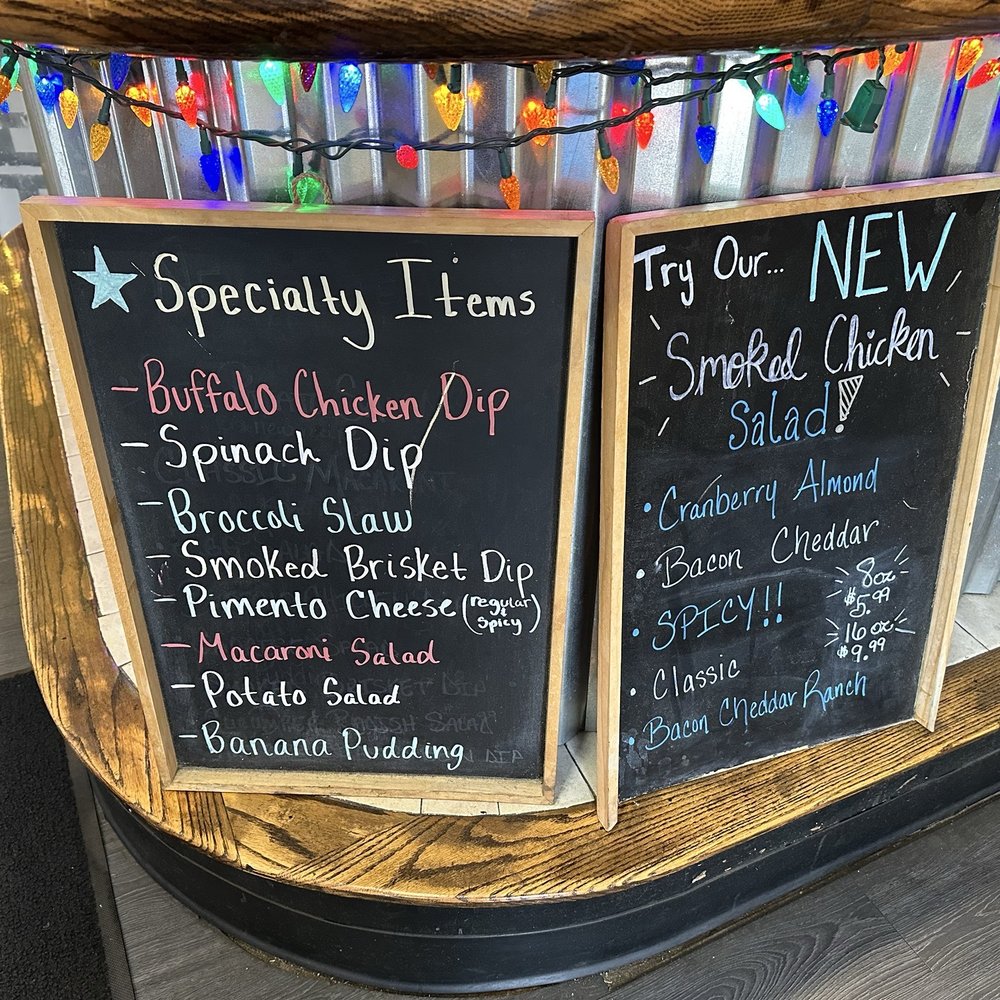 Specialty Items
- Buffalo Chicken Dip
- Spinach Dip
- Broccoli Slaw
- Smoked Brisket Dip
- Pimento Cheese (regular & spicy)
- Macaroni Salad
- Potato Salad
- Banana Pudding
Try Our... NEW
Smoked Chicken
Salad!
• Cranberry Almond
• Bacon Cheddar
• SPICY!!
• Classic
• Bacon Cheddar Ranch
8oz
$5.99
16oz
$9.99